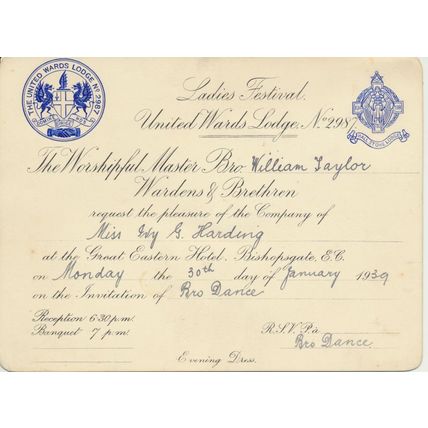 THE UNITED WARDS LODGE Nº 2987
Ladies Festival.
United Wards Lodge, Nº 2987
The Worshipful Master Bro. William Taylor
Wardens & Brethren
request the pleasure of the Company of
Miss Ivy G. Harding
at the Great Eastern Hotel, Bishopsgate, E.C.
on Monday the 30th day of January 1939
on the Invitation of Bro Dance
Reception 6·30 p.m.
Banquet 7 p.m.
R.S.V.P. à
Bro Dance.
Evening Dress.